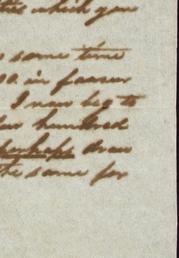 which you
some time
in favour
I now beg to
hundred
perhaps draw
the same for